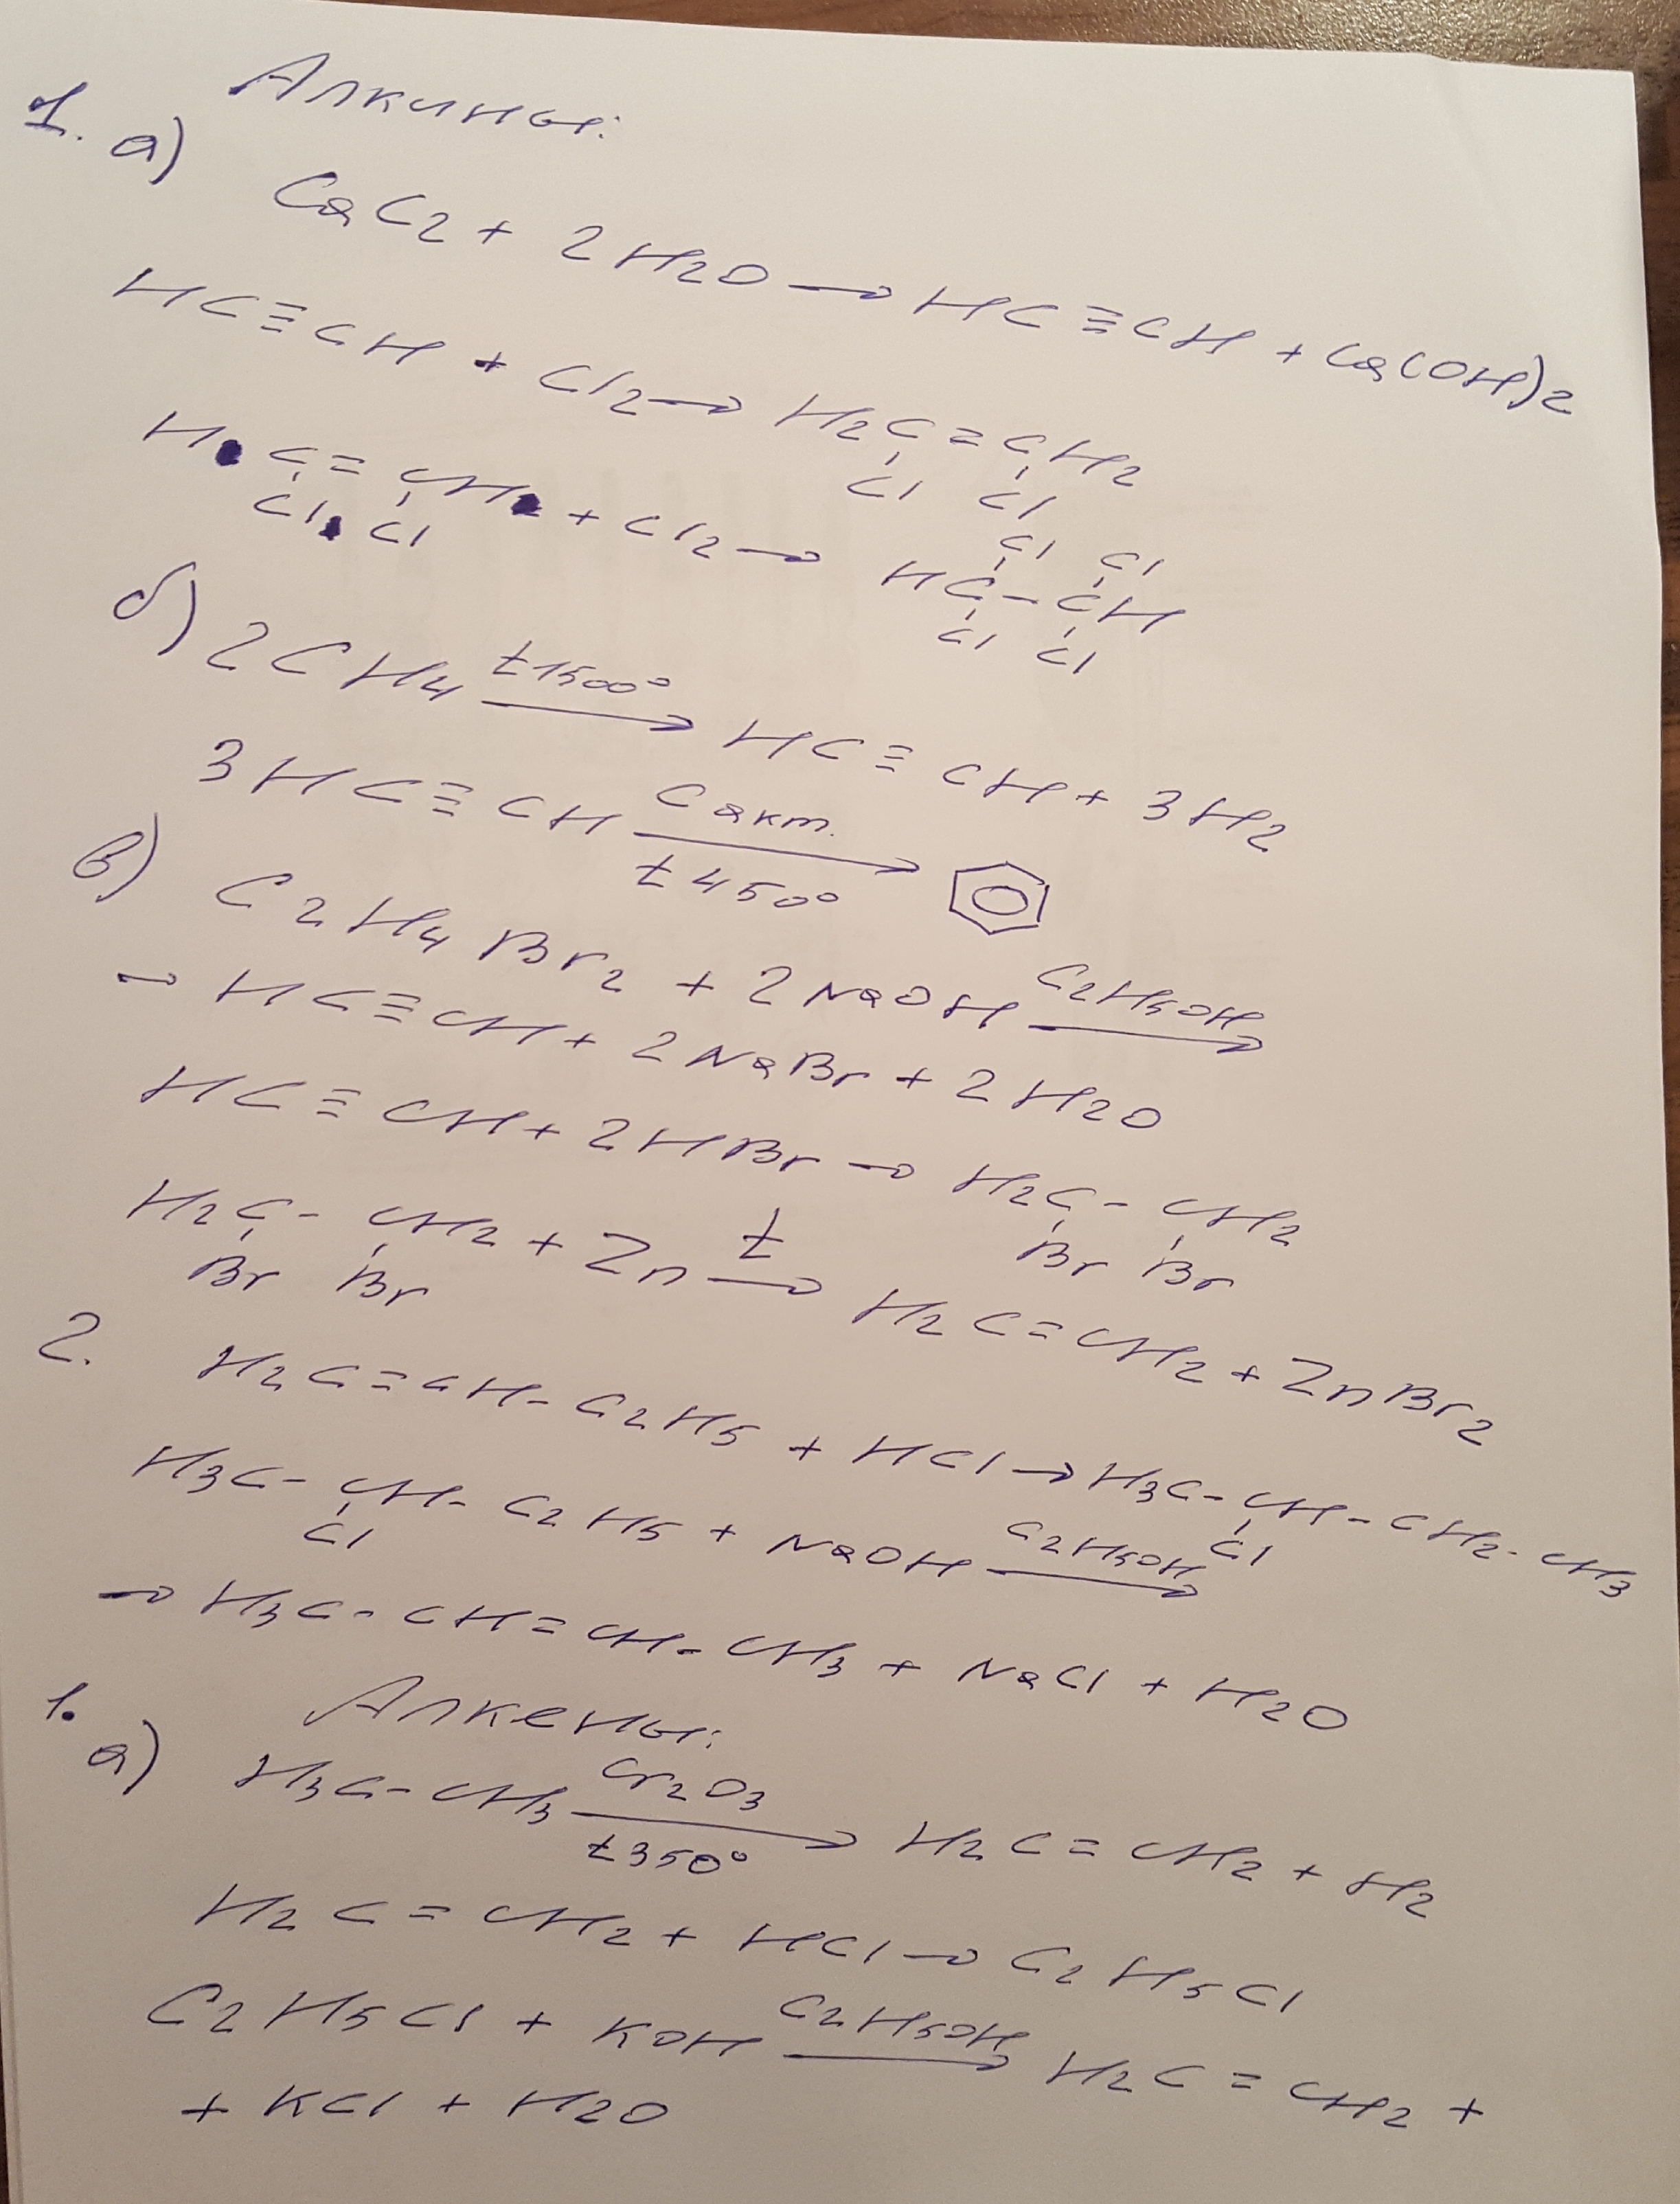 Алкины:
1. а)
CaC2 + 2H2O → HC≡CH + Ca(OH)2
HC≡CH + Cl2 → H2C=CH2
Cl Cl
HC=CH + Cl2 → HC-CH
Cl Cl
Cl Cl
Cl Cl
б) 2CH4 t1500° → HC≡CH + 3H2
3HC≡CH C акт. t450° →
в) C2H4Br2 + 2NaOH C2H5OH →
→ HC≡CH + 2NaBr + 2H2O
HC≡CH + 2HBr → H2C-CH2
Br Br
H2C-CH2 + Zn t → H2C=CH2 + ZnBr2
Br Br
2. H2C=CH-C2H5 + HCl → H3C-CH-CH2-CH3
Cl
H3C-CH-C2H5 + NaOH C2H5OH →
Cl
→ H3C-CH=CH-CH3 + NaCl + H2O
Алкены:
1. а) H3C-CH3 Cr2O3 t350° → H2C=CH2 + H2
H2C=CH2 + HCl → C2H5Cl
C2H5Cl + KOH C2H5OH → H2C=CH2 +
+ KCl + H2O